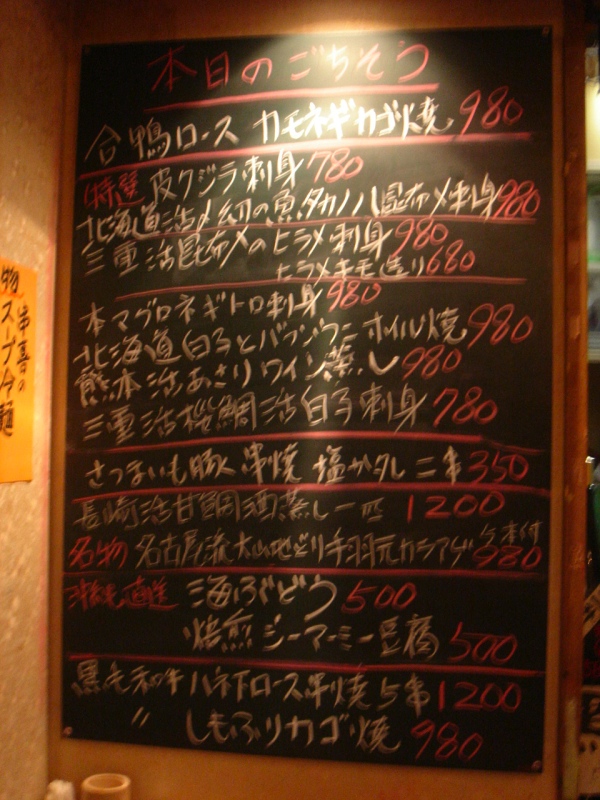 本日のごちそう
合鴨ロース カモネギカゴ焼 980
特選 皮クジラ刺身 780
北海道活〆幻の魚タカノハ昆布〆刺身 980
三重活昆布〆のヒラメ刺身 980
ヒラメキモ造り 680
本マグロネギトロ刺身 980
北海道白子とバフンウニホイル焼 980
熊本活あさりワイン蒸し 980
三重活桜鯛活白子刺身 780
さつまいも豚串焼 塩かタレ 二串 350
長崎活甘鯛酒蒸し一匹 1200
名物 名古屋流大山地どり手羽元カラアゲ 980
沖縄直送 海ぶどう 500
焙煎ジーマーミー豆腐 500
黒毛和牛ハネ下ロース串焼5串 1200
〃 しもふりカゴ焼 980
物スープ冷麺